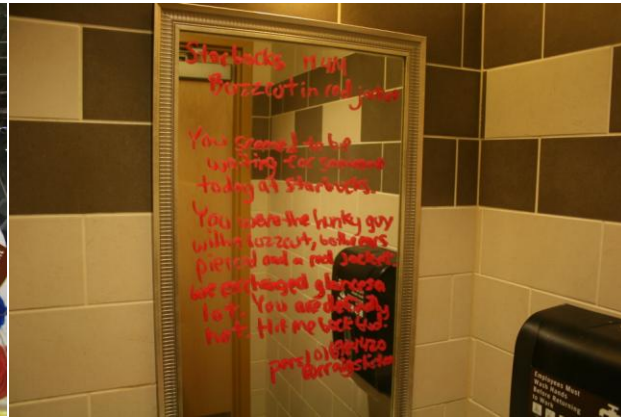 Starbucks M4M
Buzzcut in red jacket
You seemed to be
waiting for someone
today at Starbucks.
You were the hunky guy
with a buzzcut, both ears
pierced and a red jacket
We exchanged glances a
lot. You are definitely
hot. Hit me back bud.
Employees Must
Wash Hands
Before Returning
to Work